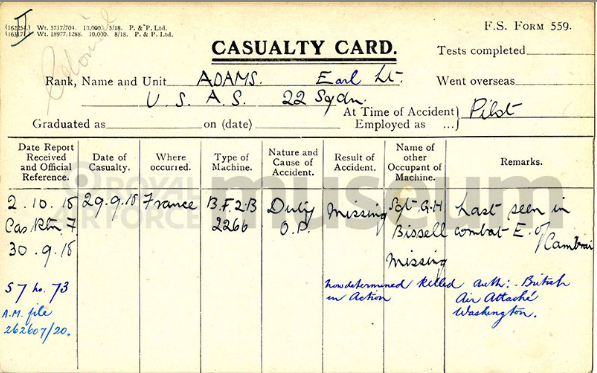 (16225A) Wt. 5717/704. 10,000. 5/18. P. & P. Ltd.
(16317) Wt. 18977.1288. 10,000. 8/18. P. & P. Ltd.
F.S. FORM 559.
II
Colonial
CASUALTY CARD.
Tests completed
Rank, Name and Unit ADAMS. Earl Lt.
Went overseas
U S A S. 22 Sqdn.
Graduated as on (date)
At Time of Accident
Employed as ...} Pilot
Date Report Received and Official Reference.
Date of Casualty.
Where occurred.
Type of Machine.
Nature and Cause of Accident.
Result of Accident.
Name of other Occupant of Machine.
Remarks.
2.10.18 29.9.18 France B.F.2.B Duty Missing Sgt G.H Last seen in
Cas Rtn 7 2266 O.P. Bissell combat E. of Cambrai
30.9.18 Missing
S7 no. 73 now determined killed auth: British
A.M. file in Action Air Attaché
262607/20. Washington.
ROYAL AIR FORCE museum